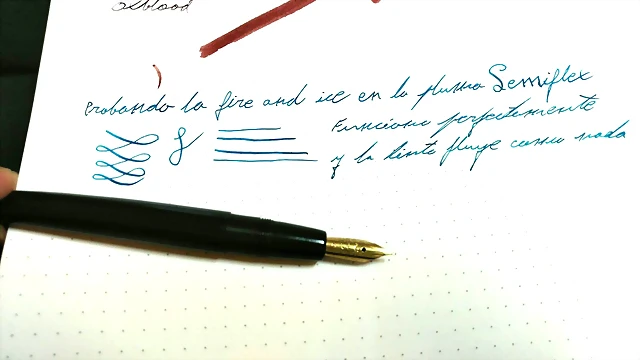 Oxblood
Probando la fire and ice en la pluma Semiflex
Funciona perfectamente
y la tinta fluye como nada